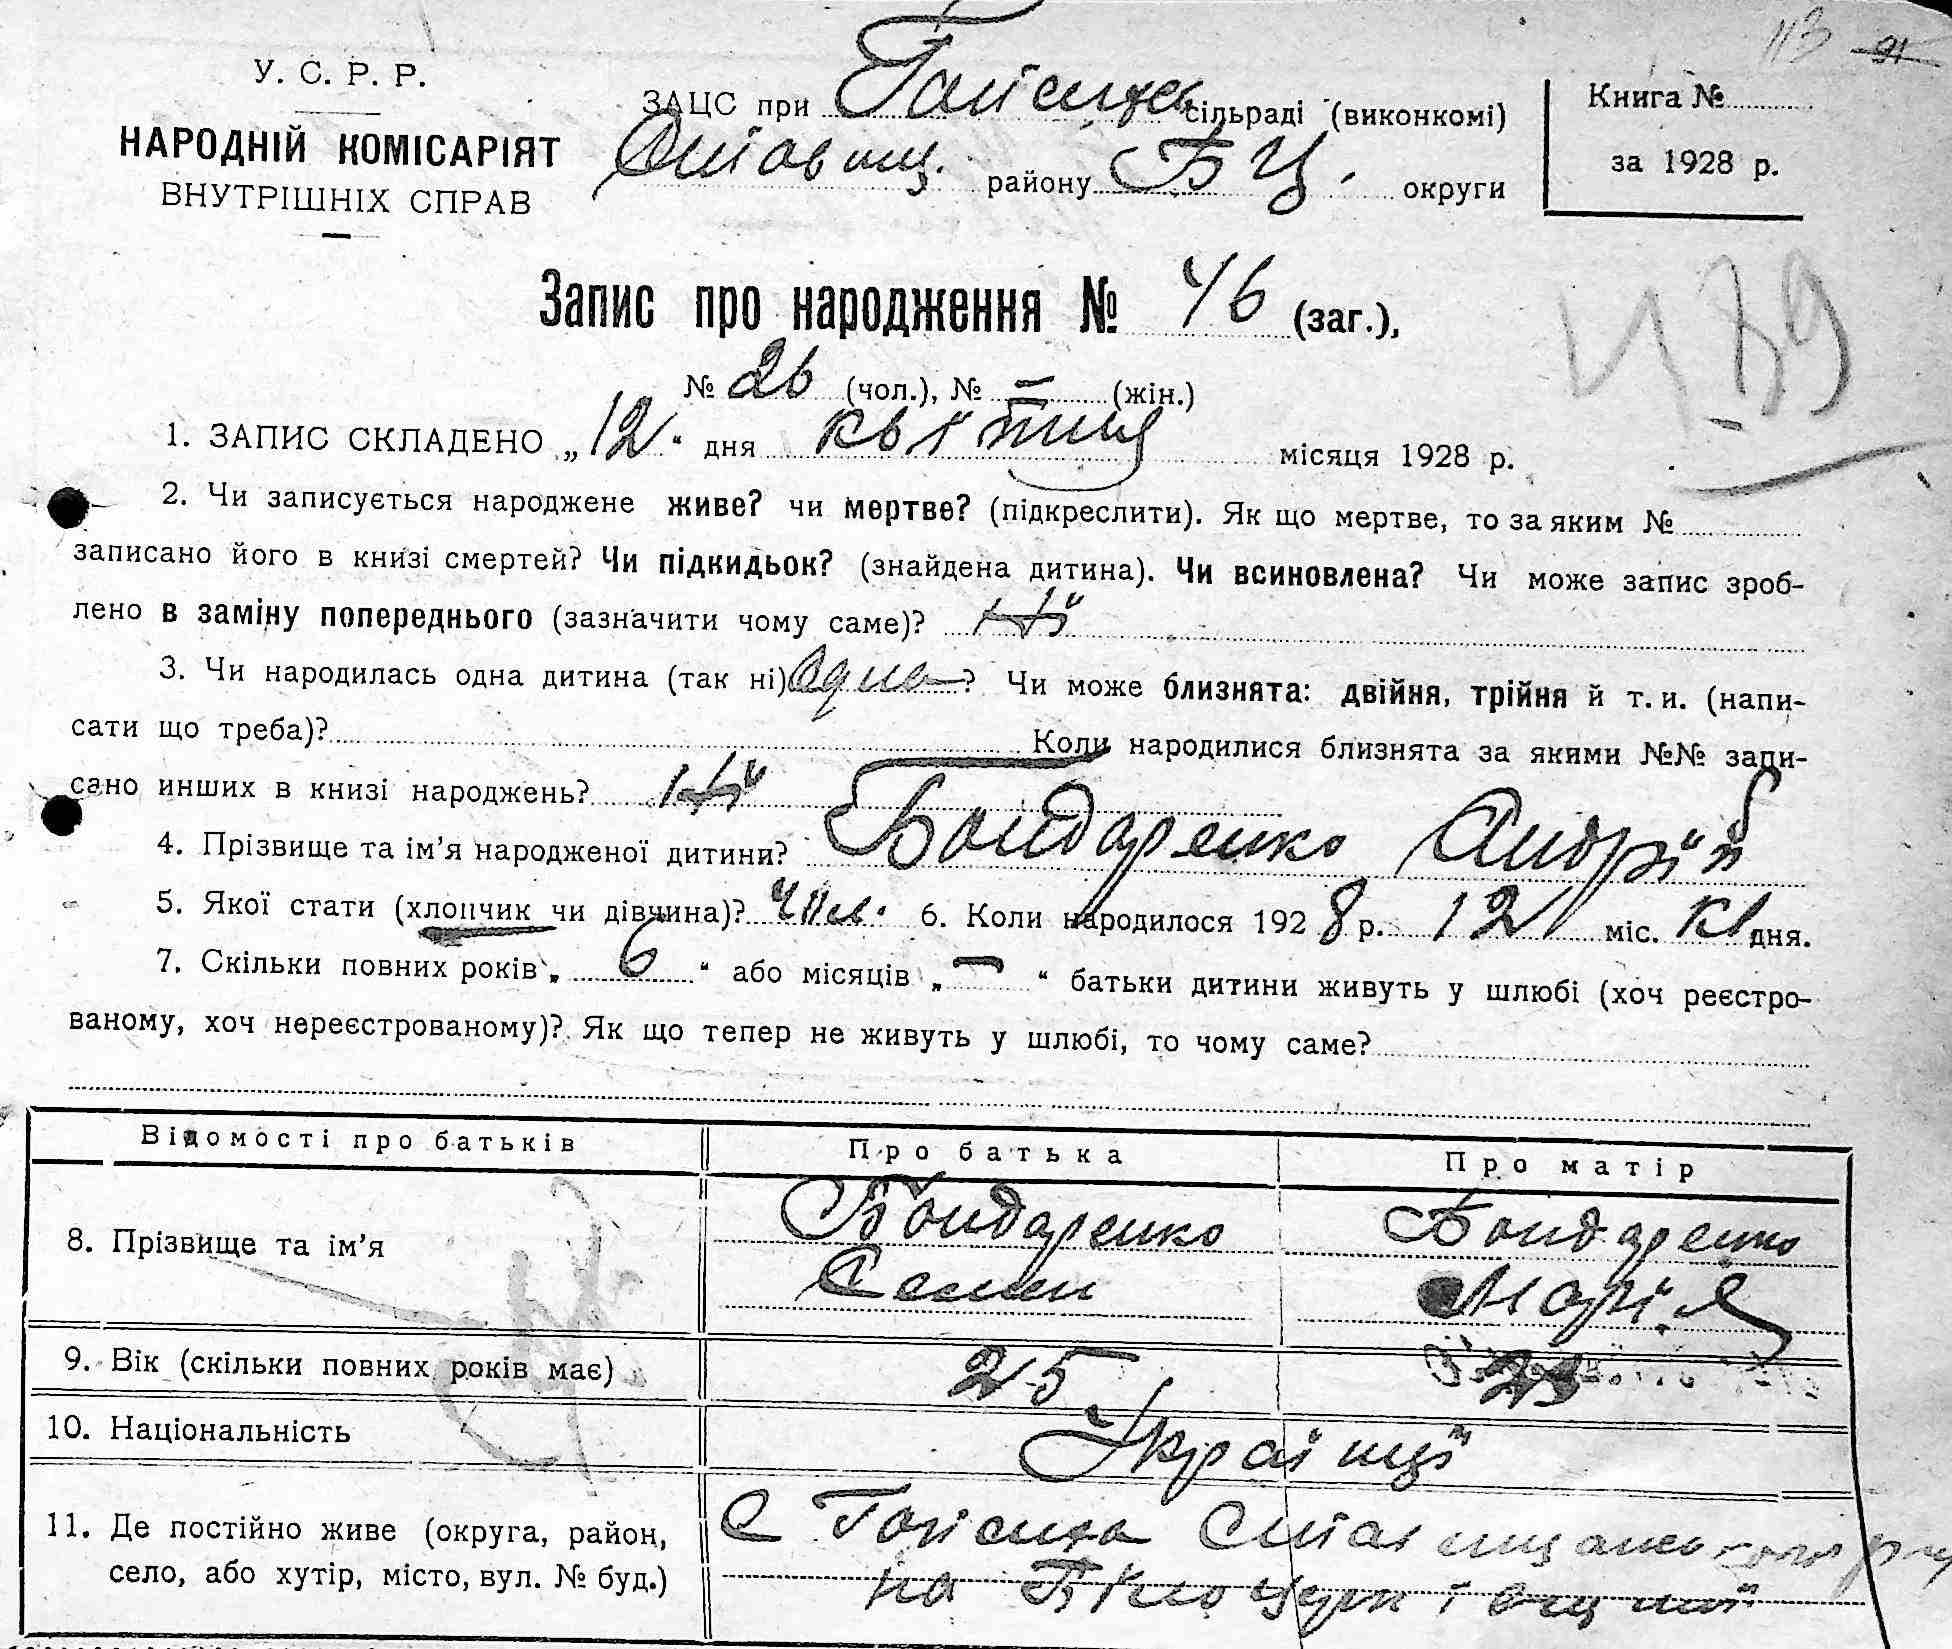 113 91
У. С. Р. Р.
НАРОДНІЙ КОМІСАРІЯТ
ВНУТРІШНІХ СПРАВ
ЗАЦС при Гайсиха сільраді (виконкомі)
Ставищ. району Б Ц. округи
Книга №
за 1928 р.
Запис про народження № 46 (заг.),
№ 26 (чол.), № — (жін.)
1. ЗАПИС СКЛАДЕНО „12“ дня квітня місяця 1928 р.
2. Чи записується народжене живе? чи мертве? (підкреслити). Як що мертве, то за яким №
записано його в книзі смертей? Чи підкидьок? (знайдена дитина). Чи всиновлена? Чи може запис зроб-
лено в заміну попереднього (зазначити чому саме)? Ні
3. Чи народилась одна дитина (так ні) Одна? Чи може близнята: двійня, трійня й т. и. (напи-
сати що треба)? Коли народилися близнята за якими №№ запи-
сано инших в книзі народжень? Ні
4. Прізвище та ім’я народженої дитини? Бондаренко Андрій
5. Якої стати (хлопчик чи дівчина)? Чол. 6. Коли народилося 1928 р. 12 міс. КВ дня.
7. Скільки повних років „ 6 “ або місяців „ — “ батьки дитини живуть у шлюбі (хоч реєстро-
ваному, хоч нереєстрованому)? Як що тепер не живуть у шлюбі, то чому саме?
Відомості про батьків Про батька Про матір
8. Прізвище та ім’я Бондаренко Семен Бондаренко Марія
9. Вік (скільки повних років має) 25 23
10. Національність Українці
11. Де постійно живе (округа, район, село, або хутір, місто, вул. № буд.) С Гайсиха Ставищанського р-ну
на Білоцерківщині